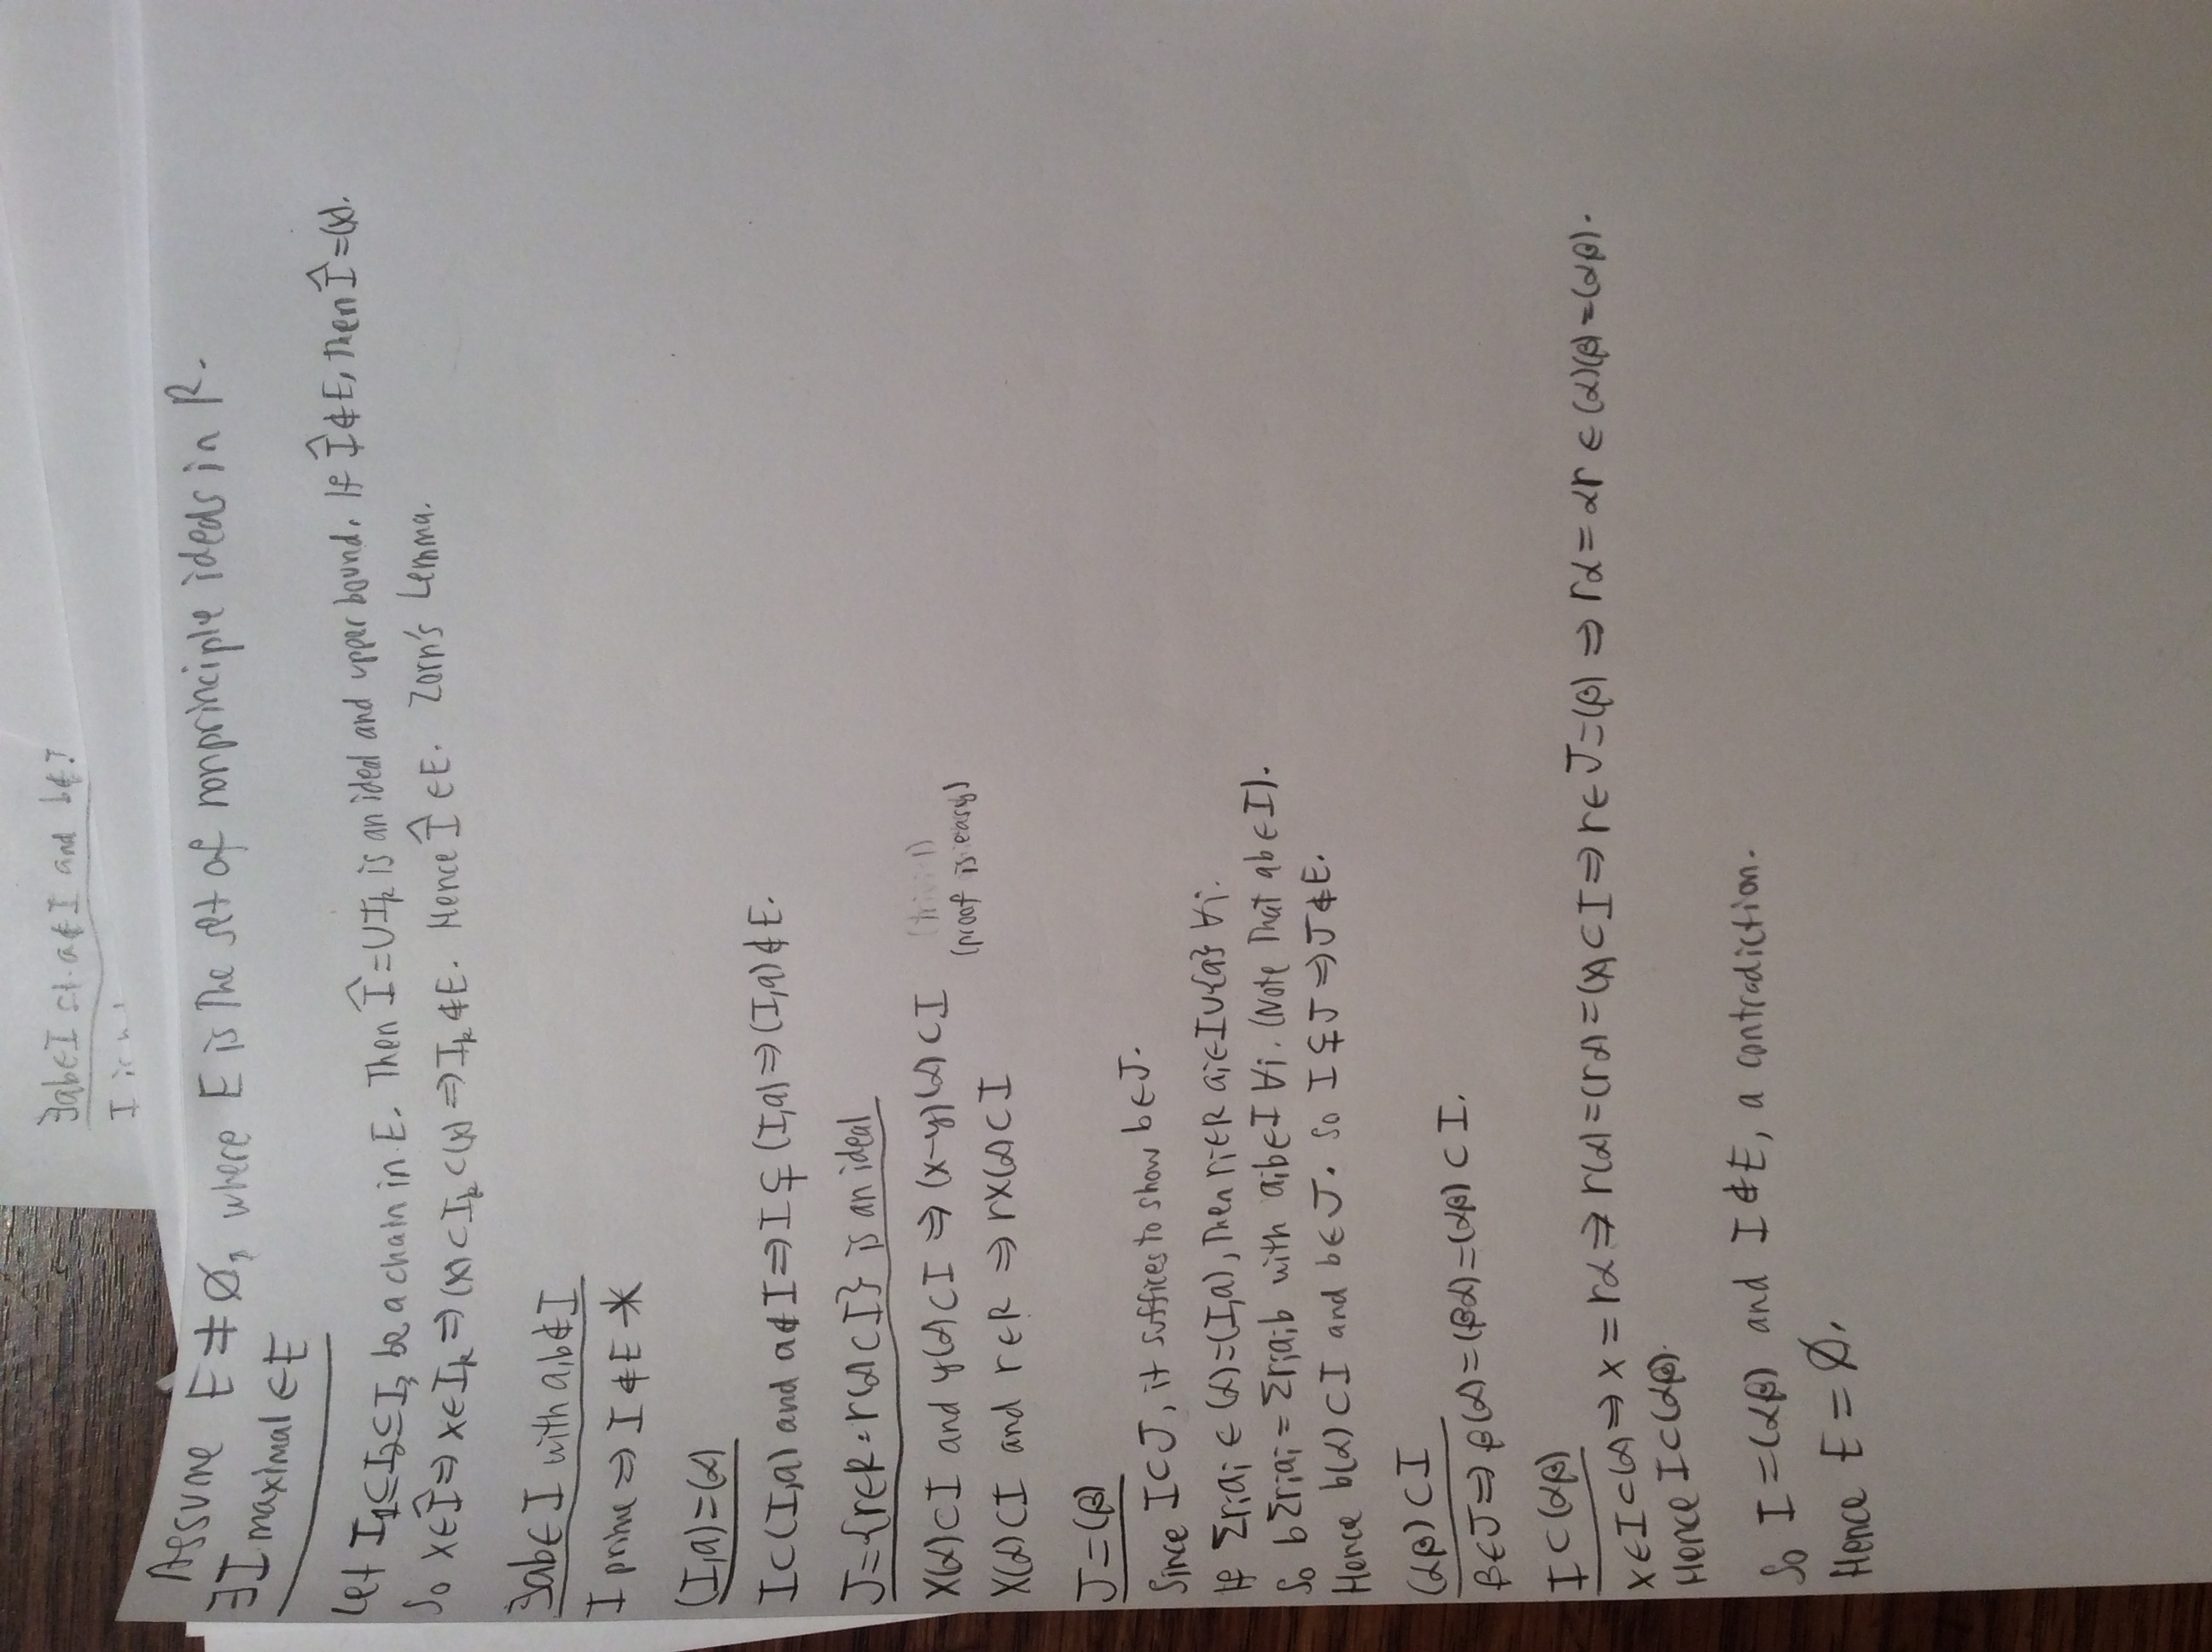 ∃ab∈I st. a∉I and b∉I
I is
Assume E≠∅, where E is the set of nonprinciple ideals in R.
∃I maximal ∈E
Let I₁⊆I₂⊆I₃ be a chain in E. Then Î=∪Iₖ is an ideal and upper bound. If Î∉E, then Î=(x).
So x∈Î⇒x∈Iₖ⇒(x)⊂Iₖ⊂(x)⇒Iₖ∉E. Hence Î∈E. Zorn's Lemma.
∃ab∈I with a,b∉I
I prime ⇒ I∉E ※
(I,a)=(α)
I⊂(I,a) and a∉I⇒I⊊(I,a)⇒(I,a)∉E.
J={r∈R:r(α)⊂I} is an ideal
x(α)⊂I and y(α)⊂I ⇒ (x-y)(α)⊂I (trivial)
(proof is easy)
x(α)⊂I and r∈R ⇒ rx(α)⊂I
J=(β)
Since I⊂J, it suffices to show b∈J.
If Σrᵢaᵢ∈(α)=(I,a), then rᵢ∈R aᵢ∈I∪{a} ∀i.
So bΣrᵢaᵢ=Σrᵢaᵢb with aᵢb∈I ∀i. (Note that ab∈I).
Hence b(α)⊂I and b∈J. So I⊊J⇒J∉E.
(αβ)⊂I
β∈J⇒β(α)=(βα)=(αβ)⊂I.
I⊂(αβ)
x∈I⊂(α)⇒x=rα⇒r(α)=(rα)=(x)⊂I⇒r∈J=(β)⇒rα=αr∈(α)(β)=(αβ).
Hence I⊂(αβ).
So I=(αβ) and I∉E, a contradiction.
Hence E=∅.